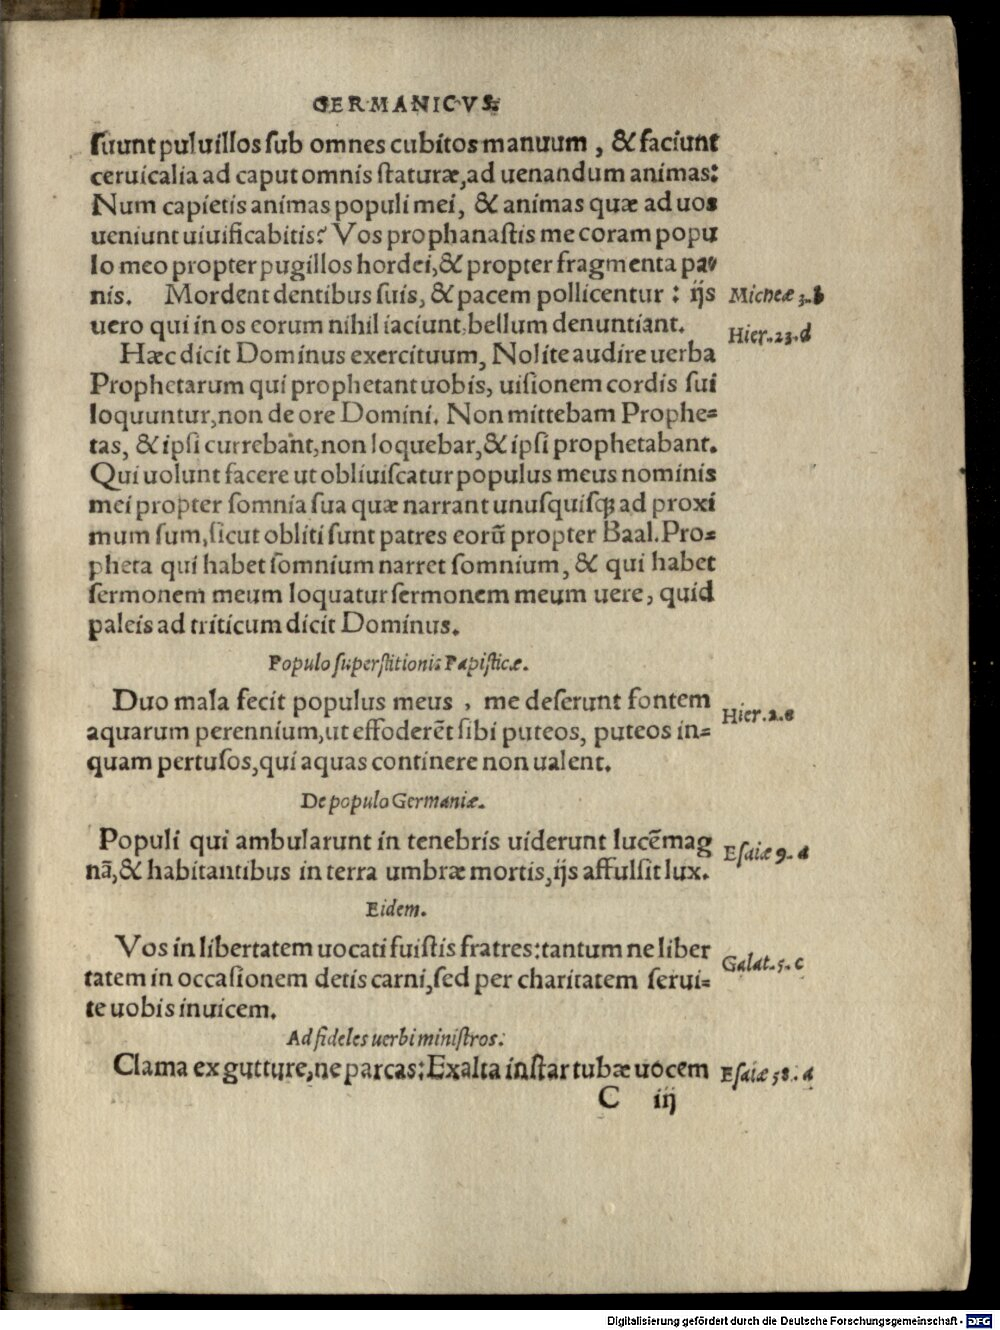 GERMANICVS.
ſuunt puluillos ſub omnes cubitos manuum, & faciunt
ceruicalia ad caput omnis ſtaturæ, ad uenandum animas:
Num capietis animas populi mei, & animas quæ ad uos
ueniunt uiuificabitis? Vos prophanaſtis me coram popu
lo meo propter pugillos hordei, & propter fragmenta pa-
nis. Mordent dentibus ſuis, & pacem pollicentur: ijs
Micheæ 3. b
uero qui in os eorum nihil iaciunt, bellum denuntiant.
Hier. 23. d
Hæc dicit Dominus exercituum, Nolite audire uerba
Prophetarum qui prophetant uobis, uiſionem cordis ſui
loquuntur, non de ore Domini. Non mittebam Prophe=
tas, & ipſi currebant, non loquebar, & ipſi prophetabant.
Qui uolunt facere ut obliuiſcatur populus meus nominis
mei propter ſomnia ſua quæ narrant unuſquiſq; ad proxi
mum ſum, ſicut obliti ſunt patres eorũ propter Baal. Pro=
pheta qui habet ſomnium narret ſomnium, & qui habet
ſermonem meum loquatur ſermonem meum uere, quid
paleis ad triticum dicit Dominus.
Populo ſuperſtitionis Papiſticæ.
Duo mala fecit populus meus, me deſerunt fontem
Hier. 2. e
aquarum perennium, ut effoderẽt ſibi puteos, puteos in=
quam pertuſos, qui aquas continere non ualent.
De populo Germaniæ.
Populi qui ambularunt in tenebris uiderunt lucẽ mag
Eſaiæ 9. a
nã, & habitantibus in terra umbræ mortis, ijs affulſit lux.
Eidem.
Vos in libertatem uocati fuiſtis fratres: tantum ne liber
Galat. 5. c
tatem in occaſionem detis carni, ſed per charitatem ſerui=
te uobis inuicem.
Ad fideles uerbi miniſtros.
Clama ex gutture, ne parcas: Exalta inſtar tubæ uocem
Eſaiæ 58. a
C iij
Digitalisierung gefördert durch die Deutsche Forschungsgemeinschaft - DFG